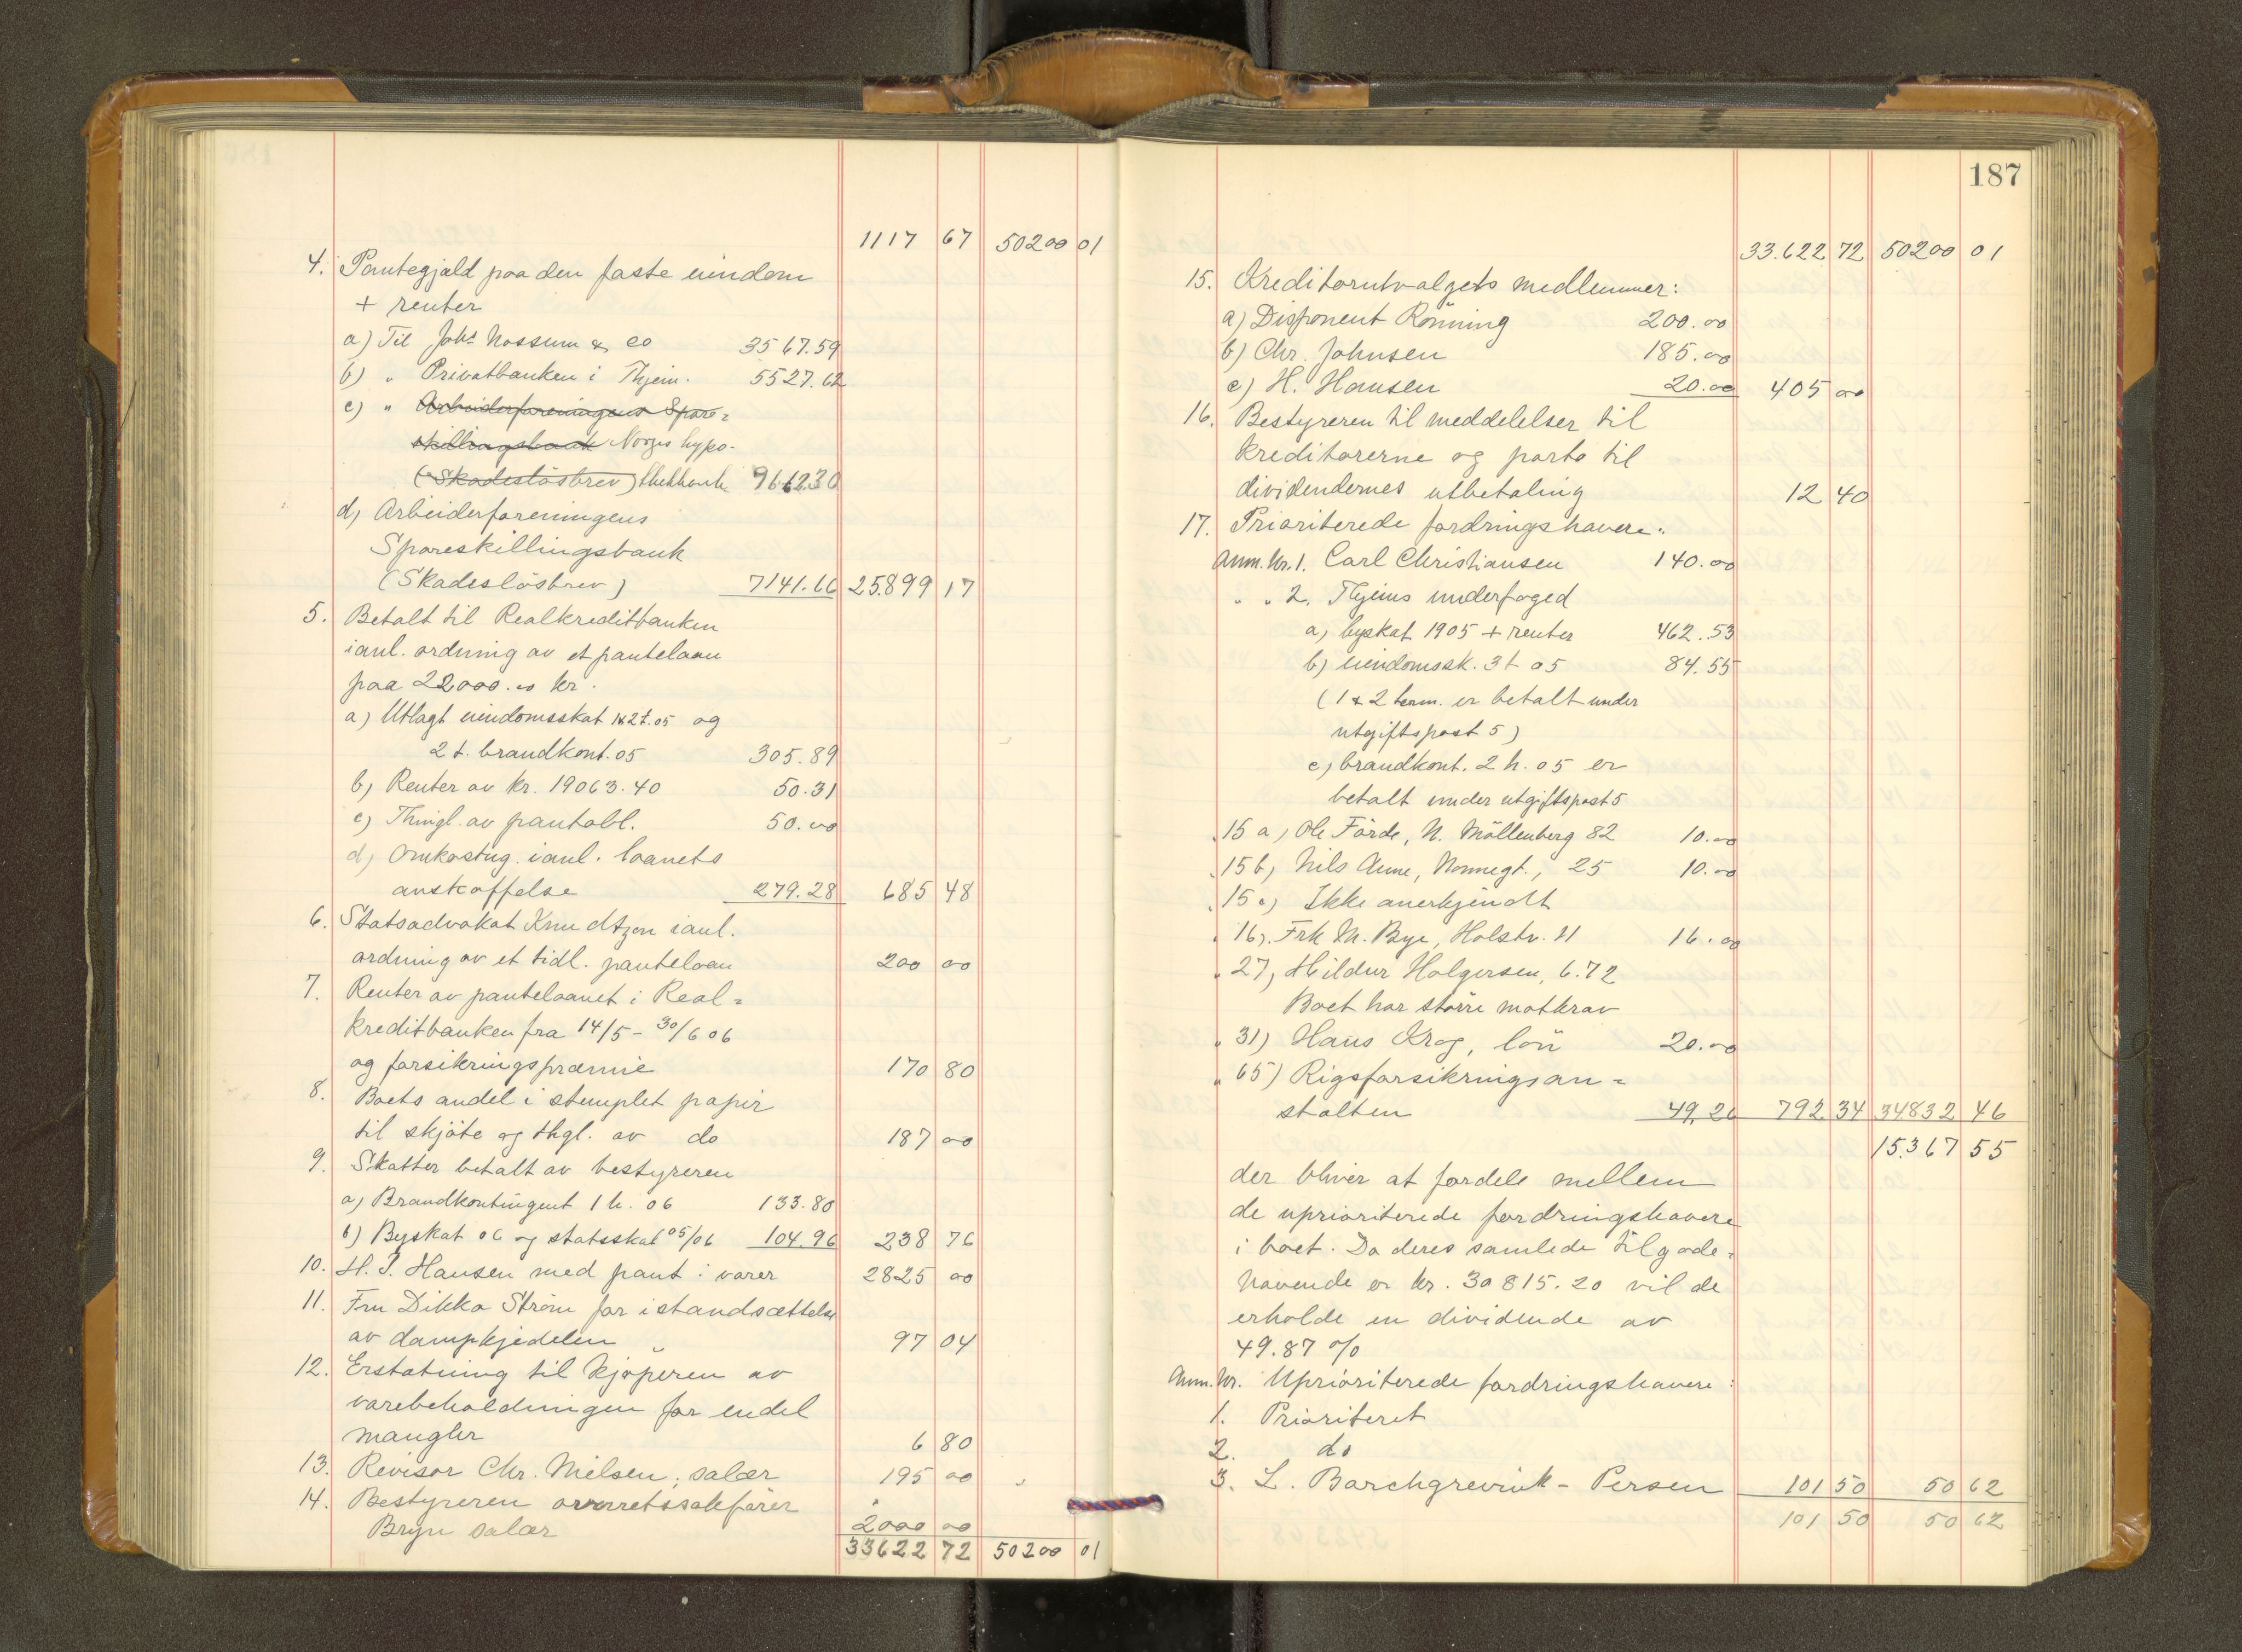 1117 67 50200 01
4. Pantegjæld paa den faste eiendom
+ renter
a) Til Johs. Nossum & Co 3567.59
b) " Privatbanken i Thjem. 5527.62
c) " Arbeiderforeningens Spare=
skillingsbank Norges hypo-
(Skadesløsbrev) thekbank 9662.30
d) Arbeiderforeningens
Spareskillingsbank
(Skadesløsbrev) 7141.66 25899 17
5. Betalt til Realkreditbanken
ianl. ordning av et pantelaan
paa 22000.00 kr.
a) Utlagt eiendomsskat 1&2t.05 og
2 t. brandkont. 05 305.89
b) Renter av kr. 19063.40 50.31
c) Thingl. av pantobl. 50.00
d) Omkostng. ianl. laanets
anskaffelse 279.28 685 48
6. Statsadvokat Knudtzon ianl.
ordning av et tidl. pantelaan 200 00
7. Renter av pantelaanet i Real=
kreditbanken fra 14/5 - 30/6 06
og forsikringspræmie 170 80
8. Boets andel i stemplet papir
til skjöte og thgl. av do 187 00
9. Skatter betalt av bestyreren
a) Brandkontingent 1 h. 06 133.80
b) Byskat 06 og statsskat 05/06 104.96 238 76
10. H. P. Hansen med pant i varer 2825 00
11. Fru Dikka Ström for istandsættelse
av dampkjedelen 97 04
12. Erstatning til kjøperen av
varebeholdningen for endel
mangler 6 80
13. Revisor Chr. Nielsen, salær 195 00
14. Bestyreren overretssakfører
Bryn salær 2000 00
33622 72 50200 01
187
33.622 72 50200 01
15. Kreditorutvalgets medlemmer:
a) Disponent Rönning 200.00
b) Chr. Johnsen 185.00
c) H. Hansen 20.00 405 00
16. Bestyreren til meddelelser til
kreditorerne og porto til
dividendernes utbetaling 12 40
17. Prioriterede fordringshavere:
Anm. Nr. 1. Carl Christiansen 140.00
" " 2. Thjems underfoged
a) byskat 1905 + renter 462.53
b) eiendomssk. 3 t 05 84.55
(1 & 2 term. er betalt under
utgiftspost 5)
c) brandkont. 2 h. 05 er
betalt under utgiftspost 5
" 15 a) Ole Förde, N. Möllenberg 82 10.00
" 15 b) Nils Aune, Nonnegt., 25 10.00
" 15 c) Ikke anerkjendt
" 16). Frk M. Bye, Holstv. 11 16.00
" 27) Hildur Holgersen, 6.72
Boet har större motkrav
" 31) Hans Krog, lön 20.00
" 65) Rigsforsikringsan=
stalten 49,26 792 34 34832 46
15.367 55
der bliver at fordele mellem
de uprioriterede fordringshavere
i boet. Da deres samlede tilgode=
havende er kr. 30815.20 vil de
erholde en dividende av
49.87 %
Anm. Nr. Uprioriterede fordringshavere:
1. Prioriteret
2. do
3. L. Borchgrevink - Persen 101 50 50 62
101 50 50 62